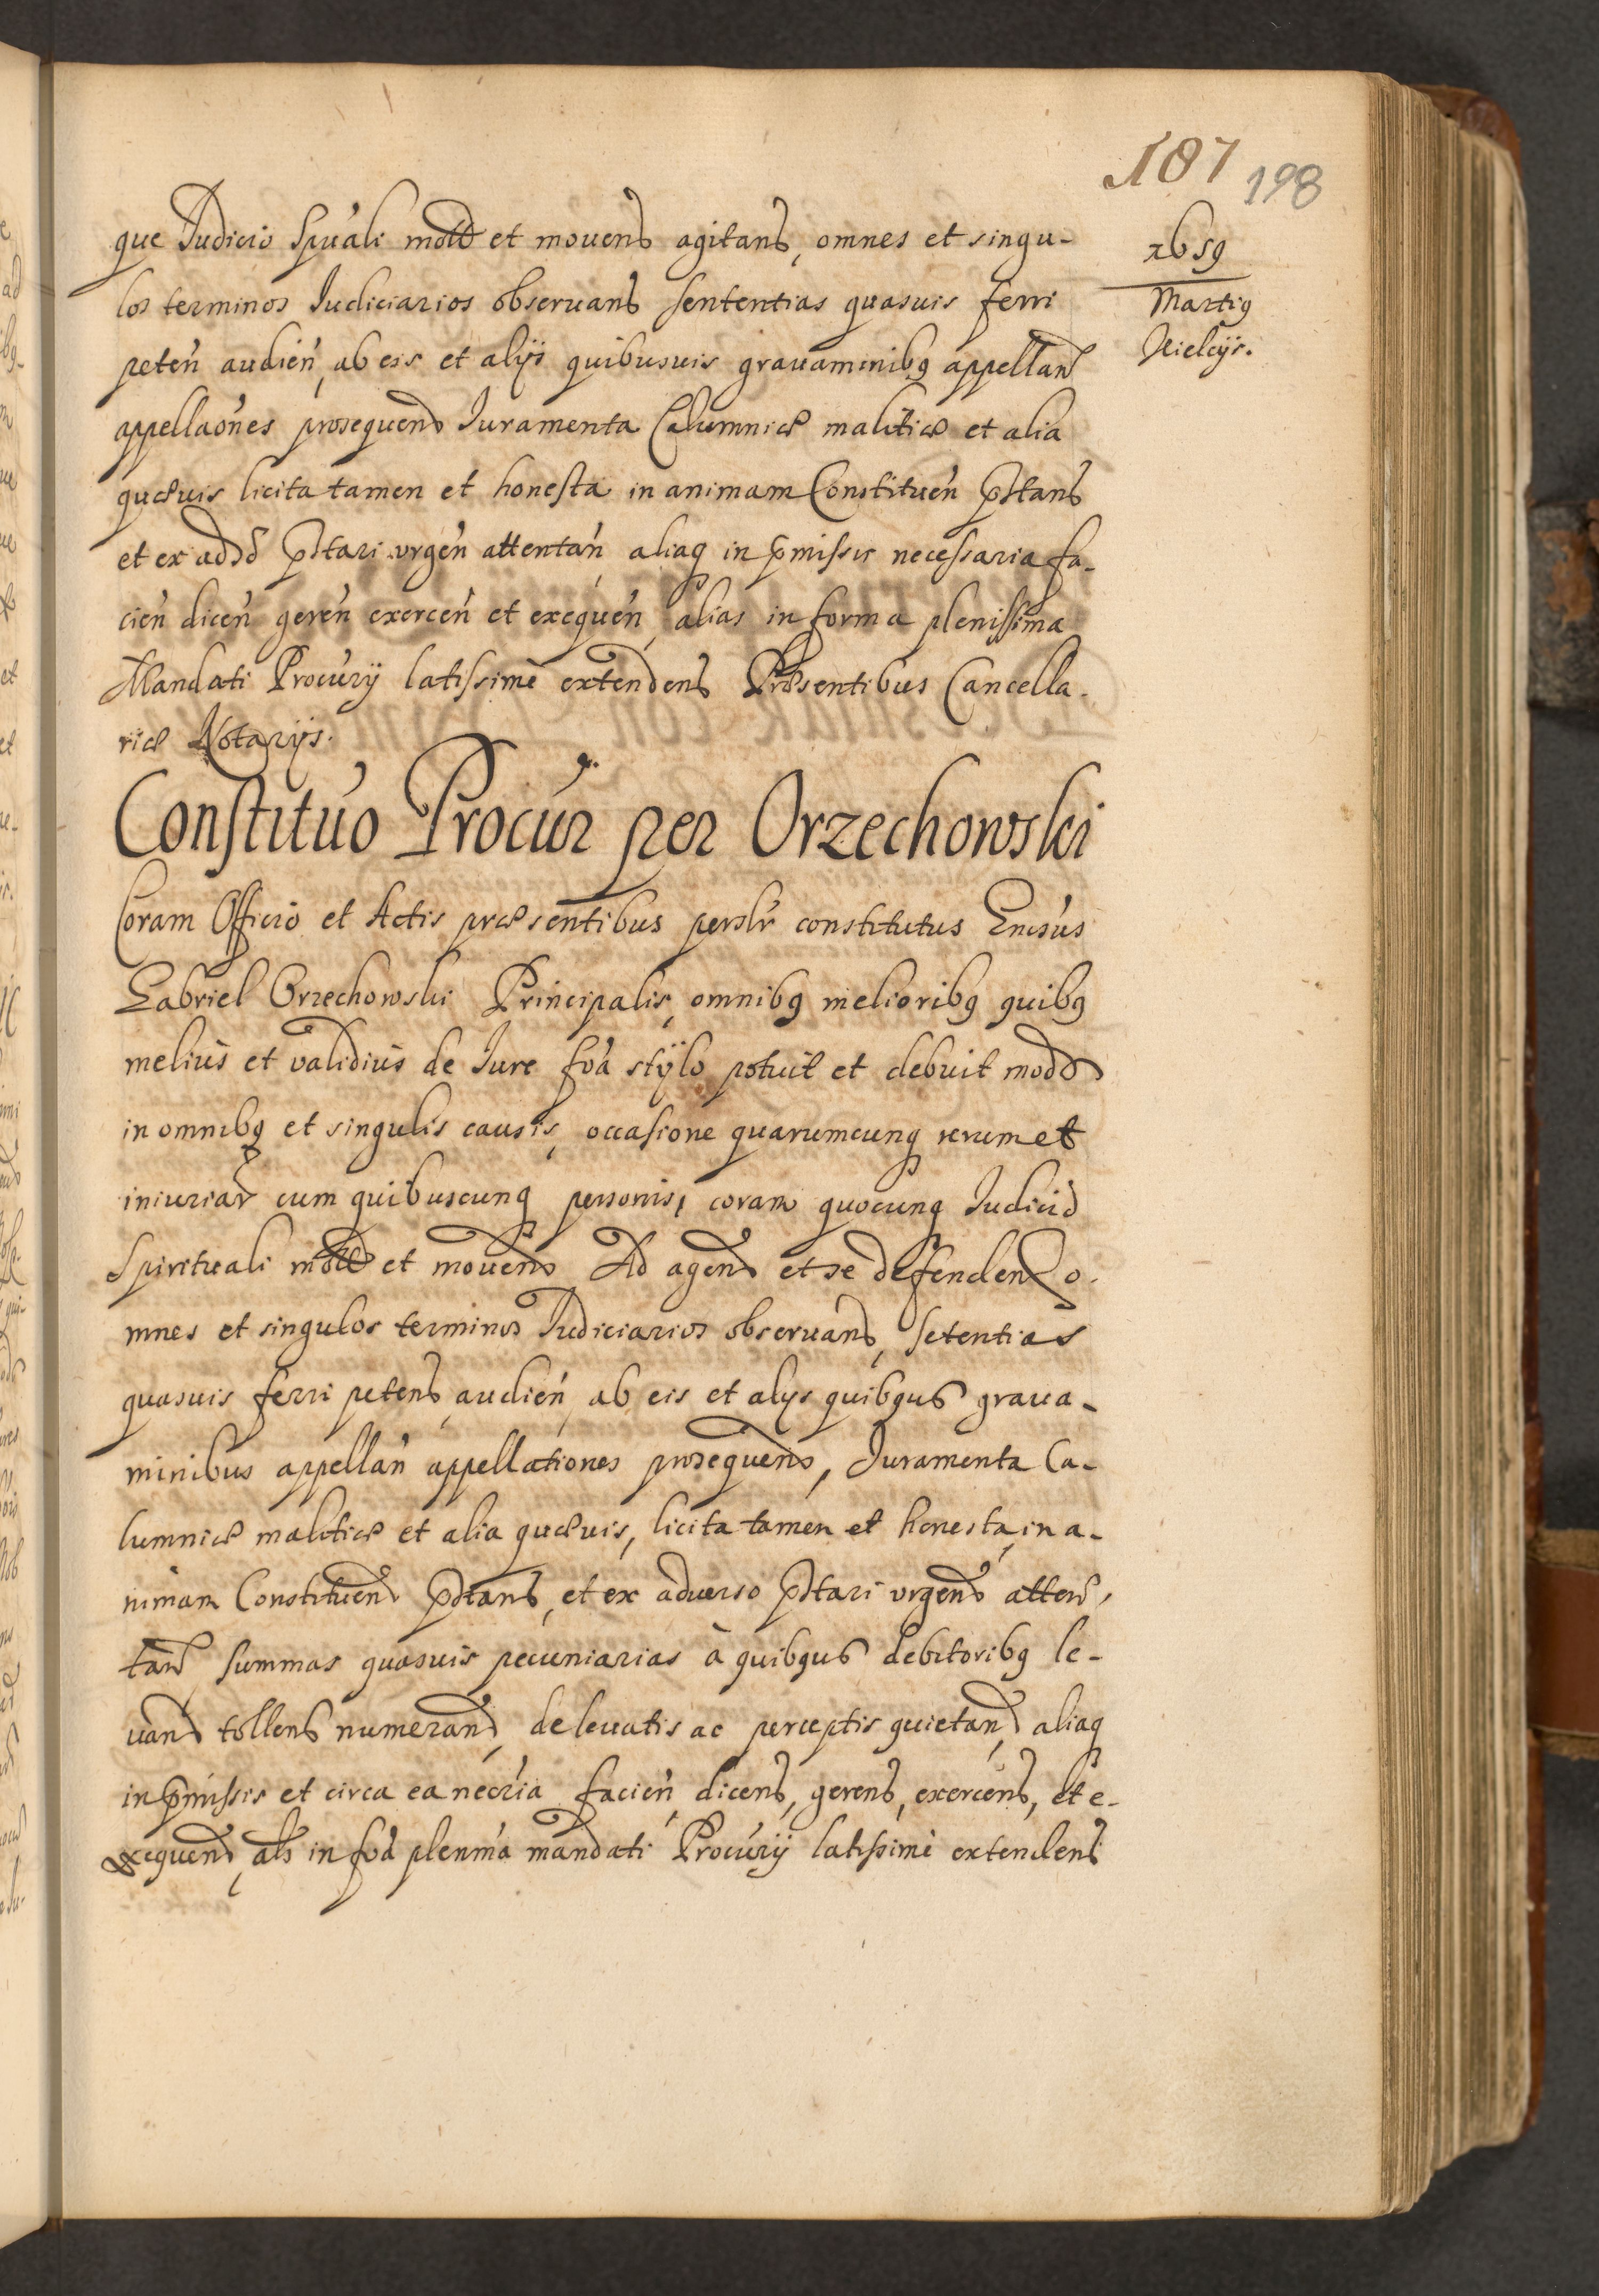 187 198
1659
Martig
Kielcijs.
que Judicio Spũali motis et mouend agitand, omnes et singu-
los terminos Iudiciarios obseruand sententias quasuis ferri
peteñ audieñ, ab eis et alijs quibusuis grauaminibg appelland
appellaões prosequend Iuramenta Calumniæ malitiæ et alia
quæuis licita tamen et honesta in animam Constitueñ p̃stand
et ex aduo p̃stari vrgeñ attentañ, aliaq in p̃missis necessaria fa-
cieñ diceñ gereñ exerceñ et exequeñ, alias in forma plenissima
Mandati Procũrij latissimè extendend Præsentibus Cancella-
riæ Notarijs.
Constituõ Procũr per Orzechowski
Coram Officio et Actis præsentibus persolr constitutus Enesus
Gabriel Orzechowski Principalis, omnibg melioribg quibg
meliùs et validiùs de Iure foã stÿlo potuit et debuit modo
in omnibg et singulis causis, occasione quarumcunq rerum et
iniuriar cum quibuscunq personis, coram quocunq Iudicio
Spirituali motis et mouend Ad agend et se defendend o-
mnes et singulos terminos Iudiciarios obseruand, setentias
quasuis ferri petend, audieñ, ab eis et alijs quibgus graua-
minibus appellañ appellationes prosequend, Iuramenta Ca-
lumniæ malitiæ et alia quæuis, licita tamen et honesta, in a-
nimam Constituend p̃stand, et ex aduerso p̃stari vrgend atten,
tand summas quasuis pecuniarias à quibgus debitoribg le-
uand tollend numerand, de leuatis ac perceptis quietand, aliaq
in p̃missis et circa ea necr̃ia facieñ, dicend, gerend, exercend, et e-
xequend, als in foã plenma mandati Procũrij latissimè extendend